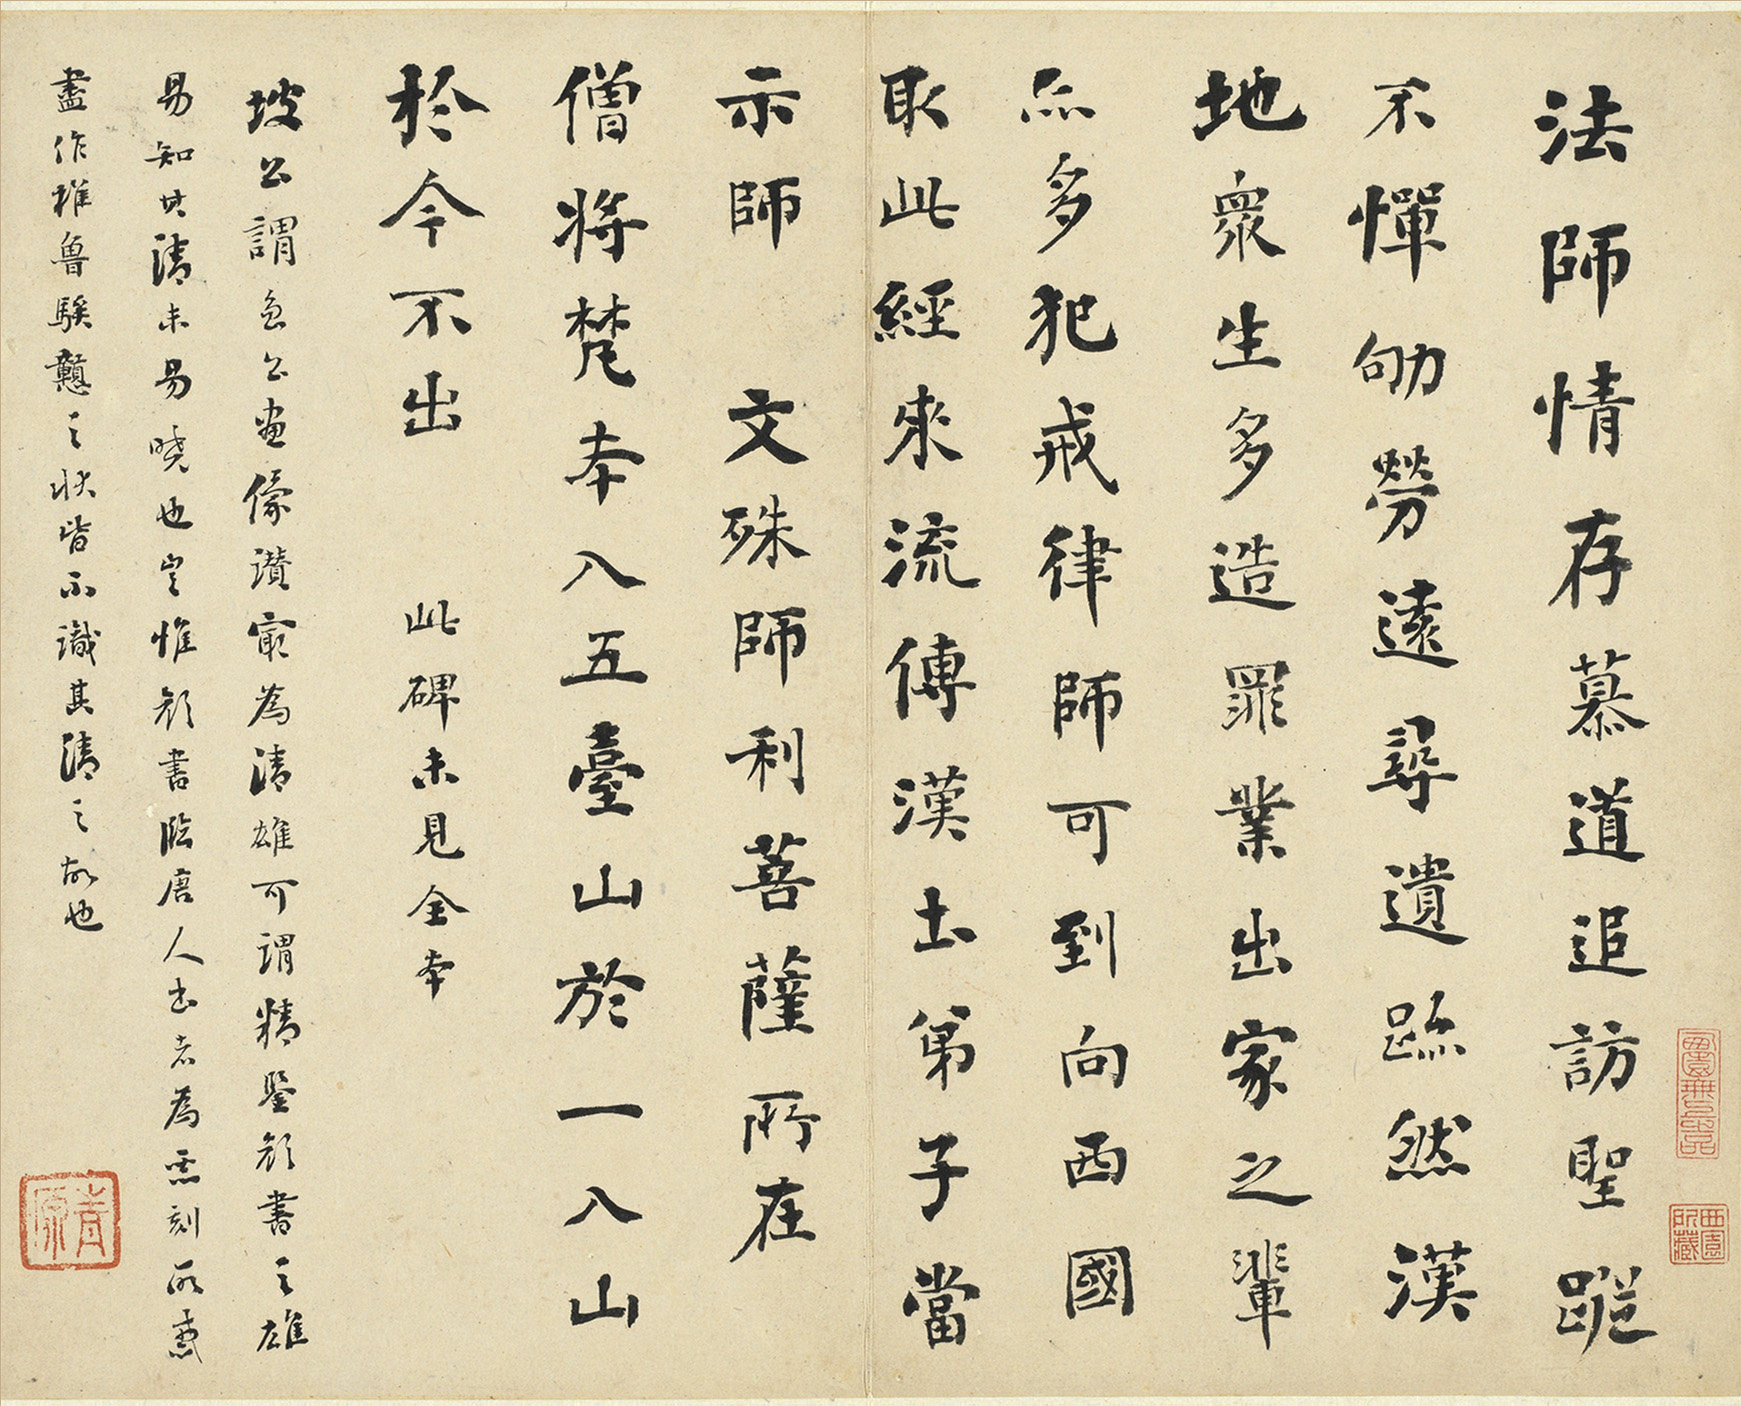 法師情存慕道追訪聖蹤
不憚劬勞遠尋遺跡然漢
地衆生多造罪業出家之輩
亦多犯戒律師可到向西國
取此經來流傳漢土弟子當
示師 文殊師利菩薩所在
僧將梵本入五臺山於一入山
於今不出 此碑未見全本
坡公謂魯公畫像讚最為清雄可謂精鑒顏書之雄
易知其清未易曉也豈惟顏書臨唐人書者為惡刻所惑
盡作椎魯騃戇之狀皆不識其清之故也
西園所藏